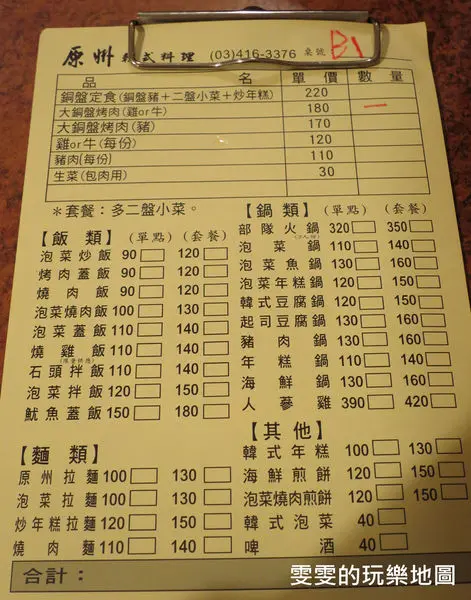 原州韓式料理 (03)416-3376 桌號 B1
品名 單價 數量
銅盤定食(銅盤豬+二盤小菜+炒年糕) 220
大銅盤烤肉(雞or牛) 180 一
大銅盤烤肉(豬) 170
雞or牛(每份) 120
豬肉(每份) 110
生菜(包肉用) 30
*套餐:多二盤小菜。
【飯類】 (單點) (套餐)
泡菜炒飯 90 120
烤肉蓋飯 90 120
燒肉飯 90 120
泡菜燒肉飯 100 130
泡菜蓋飯 110 140
燒雞飯 110 140
(限量供應)
石頭拌飯 110 140
泡菜拌飯 120 150
魷魚蓋飯 150 180
【麵類】
原州拉麵 100 130
泡菜拉麵 100 130
炒年糕拉麵 120 150
燒肉麵 110 140
【鍋類】 (單點) (套餐)
部隊火鍋 320 350
泡菜鍋 110 140
泡菜魚鍋 130 160
泡菜年糕鍋 120 150
韓式豆腐鍋 120 150
起司豆腐鍋 130 160
豬肉鍋 130 160
年糕鍋 110 140
海鮮鍋 130 160
人蔘雞 390 420
【其他】
韓式年糕 100 130
海鮮煎餅 120 150
泡菜燒肉煎餅 120 150
韓式泡菜 40
啤酒 40
合計:
雯雯的玩樂地圖